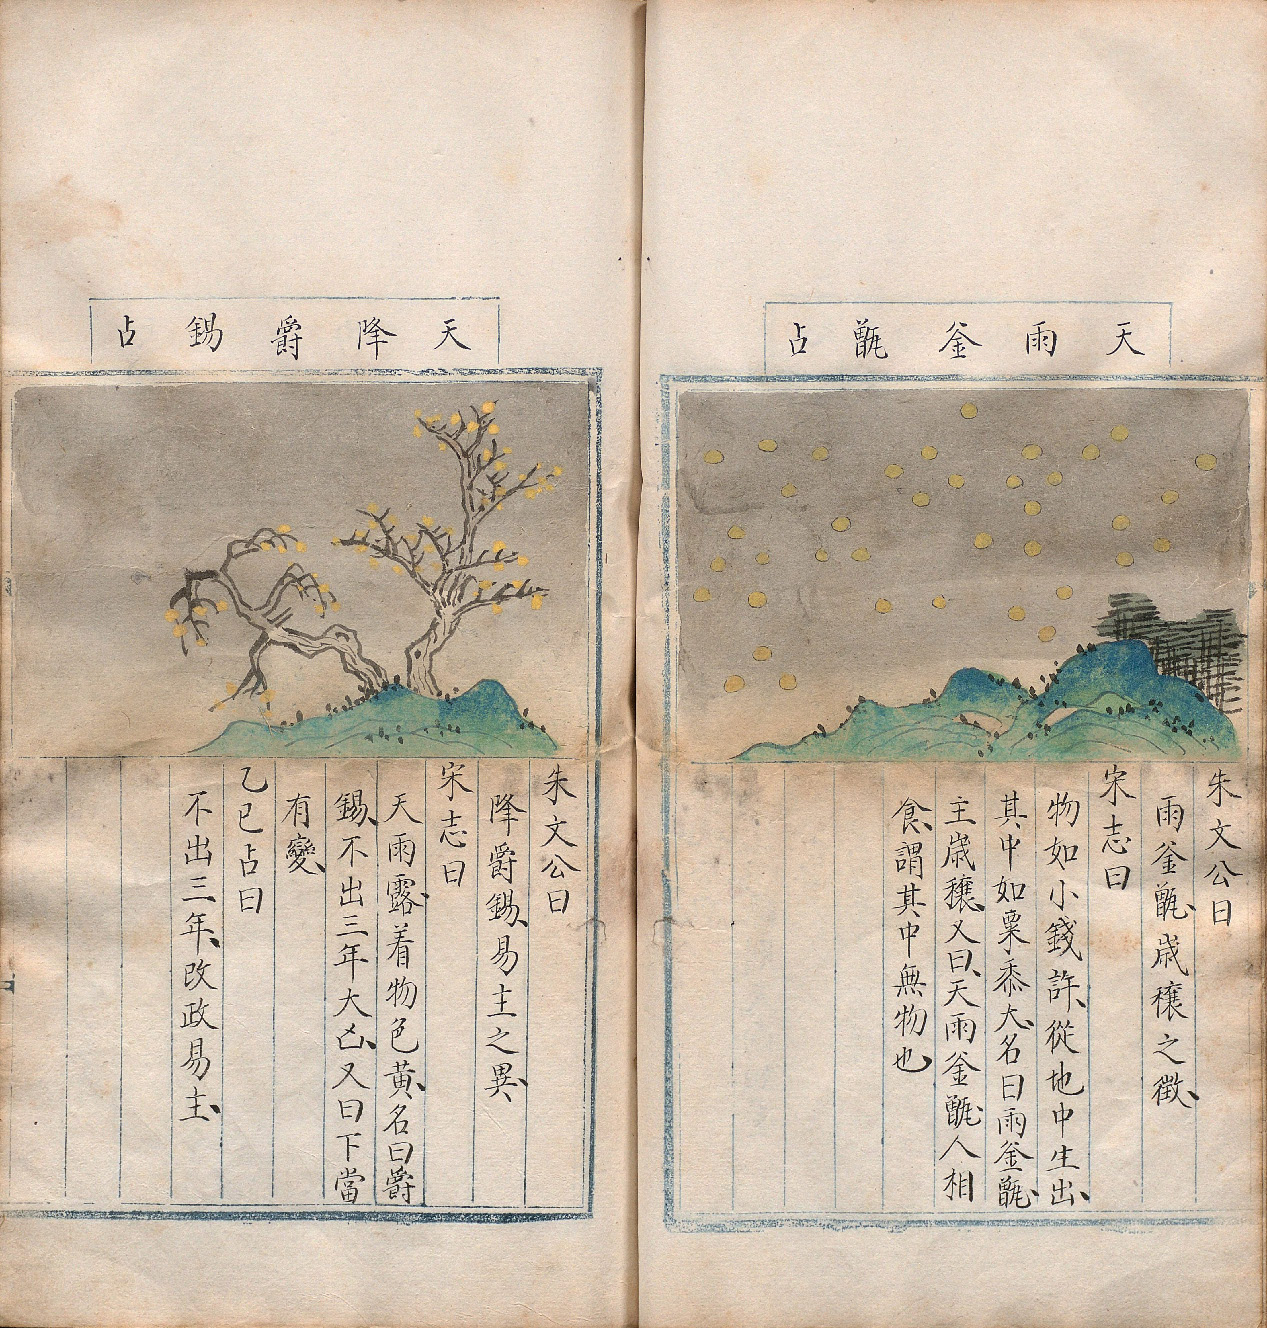 天雨釜甑占
朱文公曰
雨釜甑歲穰之徵
宋志曰
物如小錢許從地中生出
其中如粟黍大名曰雨釜甑
主歲穰又曰天雨釜甑人相
食謂其中無物也
天降爵錫占
朱文公曰
降爵錫易主之異
宋志曰
天雨露着物色黃名曰爵
錫不出三年大凶又曰下當
有變
乙巳占曰
不出三年改政易主